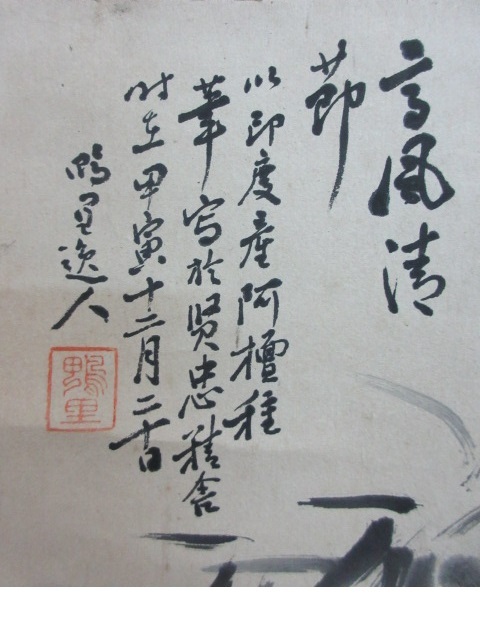 高風清
節
以印度産阿檀種
筆写於賢忠精舎
时在甲寅十二月二十日
鴨里逸人
鴨里